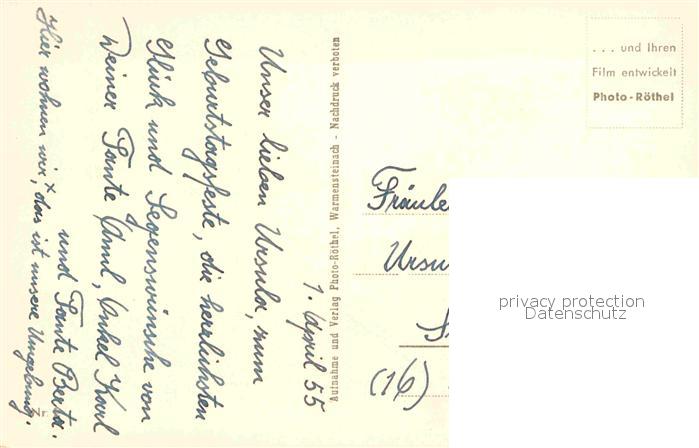 1. April 55
Unser lieben Ursula, zum
Geburtstagsfeste, die herzlichsten
Glück und Segenswünsche von
Deiner Tante Aml, Onkel Karl
und Tante Berta.
Hier wohnen wir x, das ist unsere Umgebung.
Nr.
Aufnahme und Verlag Photo-Röthel, Warmensteinach - Nachdruck verboten
. . . und Ihren
Film entwickelt
Photo-Röthel
Fräule
Ursu
(16)
privacy protection
Datenschutz